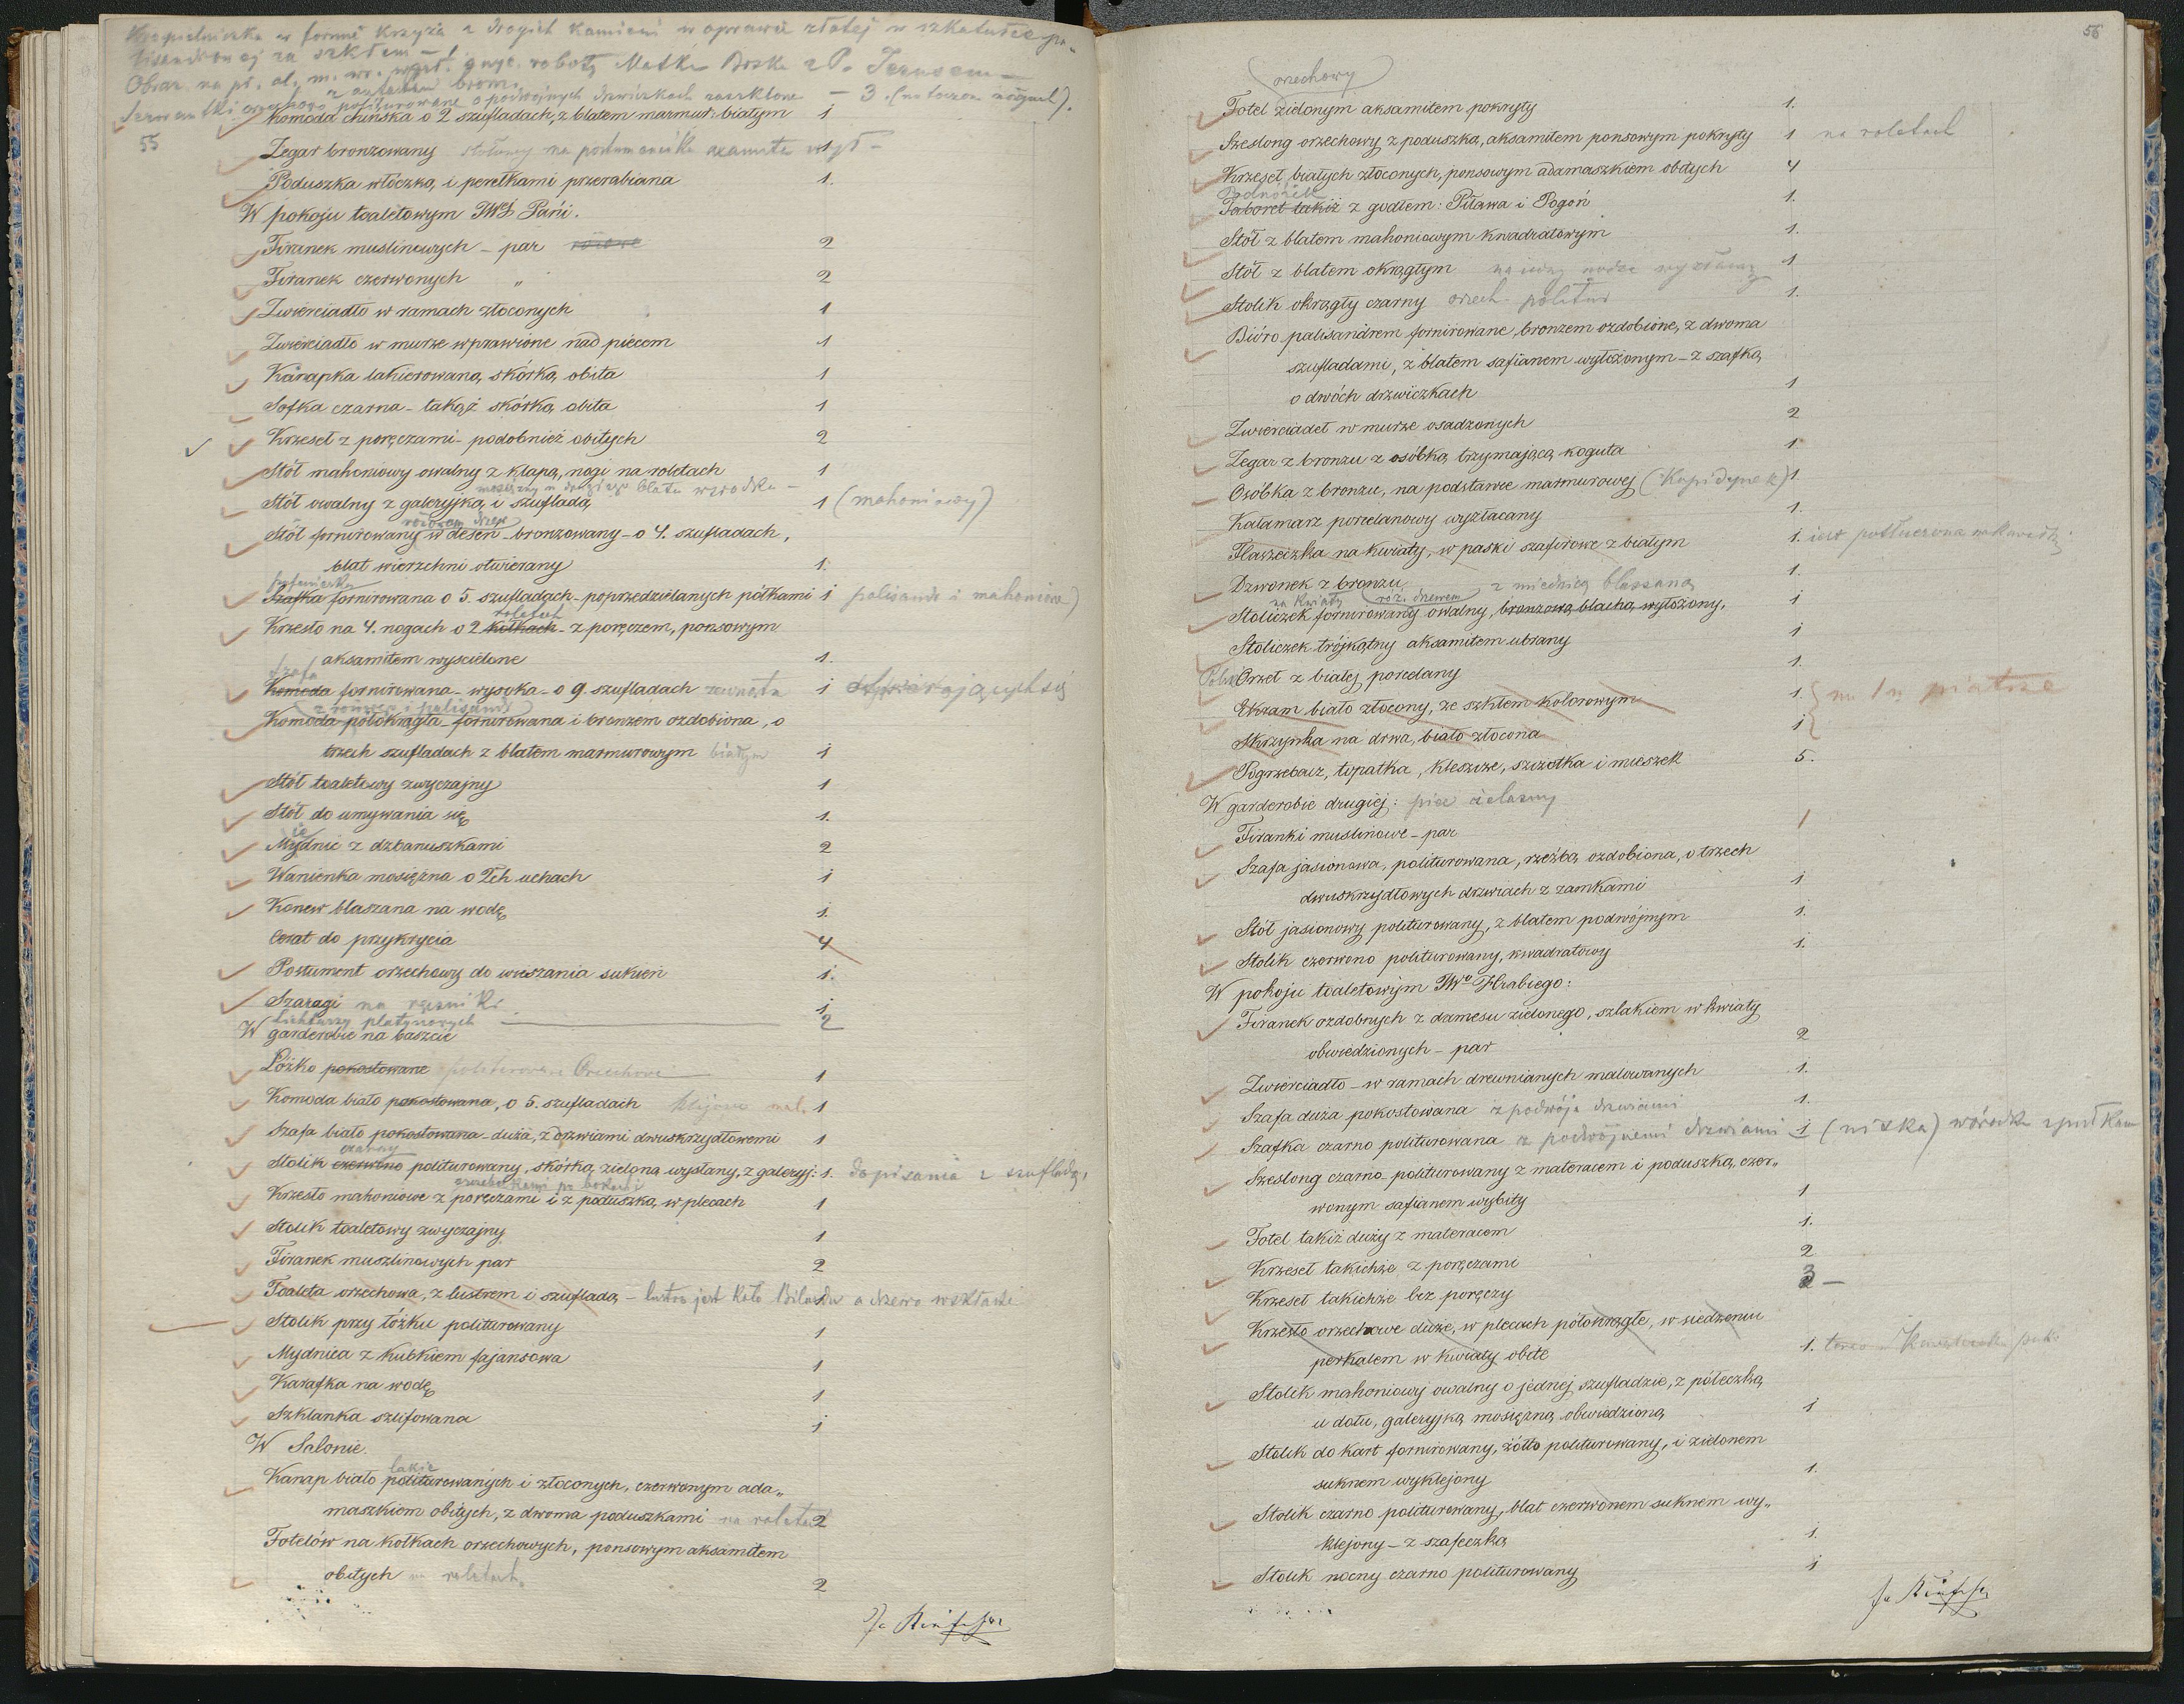 Kropielniczka w formie krzyża z drogich kamieni w oprawie złotej w szkatułce pa„
lisandrowej za szkłem — 1
Obraz na pł. al. m. wyżł. robotą Matki Boska z P. Jezusem —
z ozdobami bronz.
Serwantki orzechowo politurowane o podwójnych drzwiczkach zaszklone — 3. (na toczon nogach).
Komoda chińska o 2 szufladach, z blatem marmur: białym 1
55
Zegar bronzowany stołowy na postumenciku axamitem wył — 1
Poduszka włóczką i perełkami przerabiana 1.
W pokoju toaletowym JWej Pani.
Firanek muslinowych – par różowe 2
Firanek czerwonych „ 2
Zwierciadło w ramach złoconych 1
Zwierciadło w murze wprawione nad piecem 1
Kanapka lakierowana, skórką obita 1
Sofka czarna – takąż skórką obita 1
Krzeseł z poręczami – podobnież obitych 2
Stół mahoniowy owalny z klapą, nogi na roletach 1
mosiężną u drugiego blatu w środku —
Stół owalny z galeryjką i szufladą 1 (mahoniowy)
różowem drzew
Stół fornirowany w deseń – bronzowany – o 4. szufladach,
blat wierzchni otwierany 1.
Szafka fornirowana o 5. szufladach – poprzedzielanych półkami 1 palisandr i mahoniow)
roletach
Krzesło na 4. nogach o 2 kółkach – z poręczem, ponsowym
aksamitem wyscielone 1.
Szafa
Komoda fornirowana – wysoka – o 9. szufladach zewnątrz 1 odmykających się
z różowego i palisandr
Komoda półokrągła fornirowana i bronzem ozdobiona, o
trzech szufladach z blatem marmurowym białym 1
Stół toaletowy zwyczajny 1
Stół do umywania się 1.
ic
Mydnic z dzbanuszkami 2
Wanienka mosiężna o 2ch uchach 1
Konew blaszana na wodę 1.
Cerat do przykrycia 4
Postument orzechowy do wieszania sukien 1.
Szaragi na ręczniki 1
Lichtarzy platynowych — 2
W garderobie na baszcie
Łóżko pokostowane politurowane Orzechowe 1
Komoda biało pokostowana, o 5. szufladach klejowo mal. 1
Szafa biało pokostowana – duża, z drzwiami dwuskrzydłowemi 1
czarny
Stolik czerwono politurowany, skórką zieloną wysłany, z galeryj: 1. do pisania z szufladą,
Krzesło mahoniowe z poręczami i z poduszką w plecach 1
Stolik toaletowy zwyczajny 1
Firanek muszlinowych par 2
Toaleta orzechowa, z lustrem i szufladą – lustro jest koło Bilardu a drzewo w składzie
Stolik przy łóżku politurowany 1
Mydnica z kubkiem fajansowa 1
Karafka na wodę 1
Szklanka szlifowana 1
W Salonie.
lakie
Kanap biało politurowanych i złoconych, czerwonym ada„
maszkiem obitych, z dwoma poduszkami na roletach 2
Fotelów na kółkach orzechowych, ponsowym aksamitem
obitych na roletach. 2
56
orzechowy
Fotel zielonym aksamitem pokryty 1.
Szeslong orzechowy z poduszką, aksamitem ponsowym pokryty 1 na roletach
Krzeseł białych złoconych, ponsowym adamaszkiem obitych 4
Podnóżek
Taboret takiż z godłem: Pilawa i Pogoń 1.
Stół z blatem mahoniowym kwadratowym 1.
Stół z blatem okrągłym na jednej nodze wyzłacany 1
Stolik okrągły czarny orzech politur 1.
Bióro palisandrem fornirowane, bronzem ozdobione, z dwoma
szufladami, z blatem safianem wyłożonym – z szafką
o dwóch drzwiczkach 1
Zwierciadeł w murze osadzonych 2
Zegar z bronzu z osóbką trzymającą koguta 1
Osóbka z bronzu, na podstawie marmurowej (Kupidynek) 1
Kałamarz porcelanowy wyzłacany 1.
Flaszeczka na kwiaty, w paski szafirowe z białym 1. jest potłuczona
Dzwonek z bronzu 1.
na kwiaty róż. drzewem z miednicą blaszaną
Stoliczek fornirowany owalny, bronzową blachą wyłożony, 1
Stoliczek trójkątny aksamitem ubrany 1
Orzeł z białej porcelany 1.
Ekran biało złocony, ze szkłem kolorowym 1. na 1m piątrze
Skrzynka na drwa, biało złocona 1
Pogrzebacz, łopatka, kleszcze, szczotka i mieszek 5.
W garderobie drugiej: piec żelazny
Firanki muslinowe – par 1
Szafa jasionowa, politurowana, rzeźbą ozdobiona, o trzech
dwuskrzydłowych drzwiach z zamkami 1
Stół jasionowy politurowany, z blatem podwójnym 1.
Stolik czerwono politurowany, kwadratowy 1.
W pokoju toaletowym JWo Hrabiego:
Firanek ozdobnych z damesu zielonego, szlakiem w kwiaty
obwiedzionych – par 2
Zwierciadło – w ramach drewnianych malowanych 1.
Szafa duża pokostowana z podwój. drzwiami 1.
Szafka czarno politurowana z podwójnemi drzwiami 1 (nizka) w środku z pułkam
Szeslong czarno – politurowany z materacem i poduszką, czer„
wonym safianem wybity 1
Fotel takiż duży z materacem 1.
Krzeseł takichże z poręczami 2
Krzeseł takichże bez poręczy 3 —
Krzesło orzechowe duże, w plecach półokrągłe, w siedzeniu
perkalem w kwiaty obite 1.
Stolik mahoniowy owalny o jednej szufladzie, z półeczką
u dołu, galeryjką mosiężną obwiedzioną 1
Stolik do kart fornirowany, żółto politurowany, i zielonem
suknem wyklejony 1.
Stolik czarno politurowany, blat czerwonem suknem wy„
klejony – z szafeczką 1.
Stolik nocny czarno politurowany 1